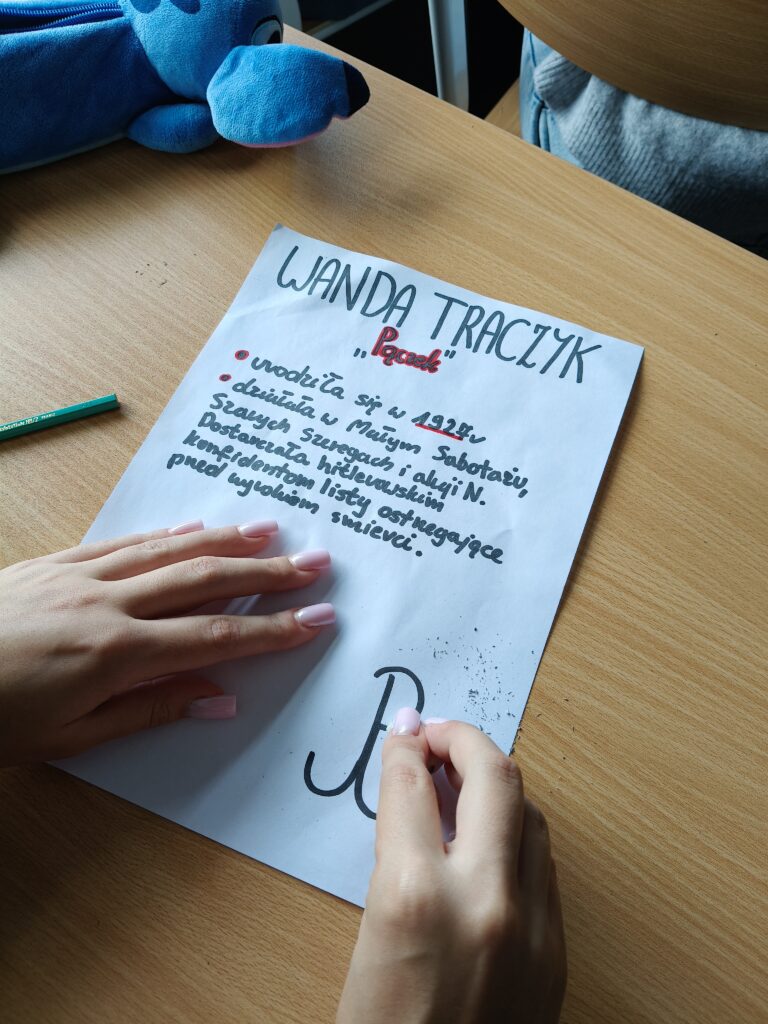 WANDA TRACZYK
„Pączek"
• urodziła się w 1927r
• działała w Małym Sabotażu,
Szarych Szeregach i akcji N.
Dostarczała hitlerowskim
konfidentom listy ostrzegające
przed wyrokiem śmierci.